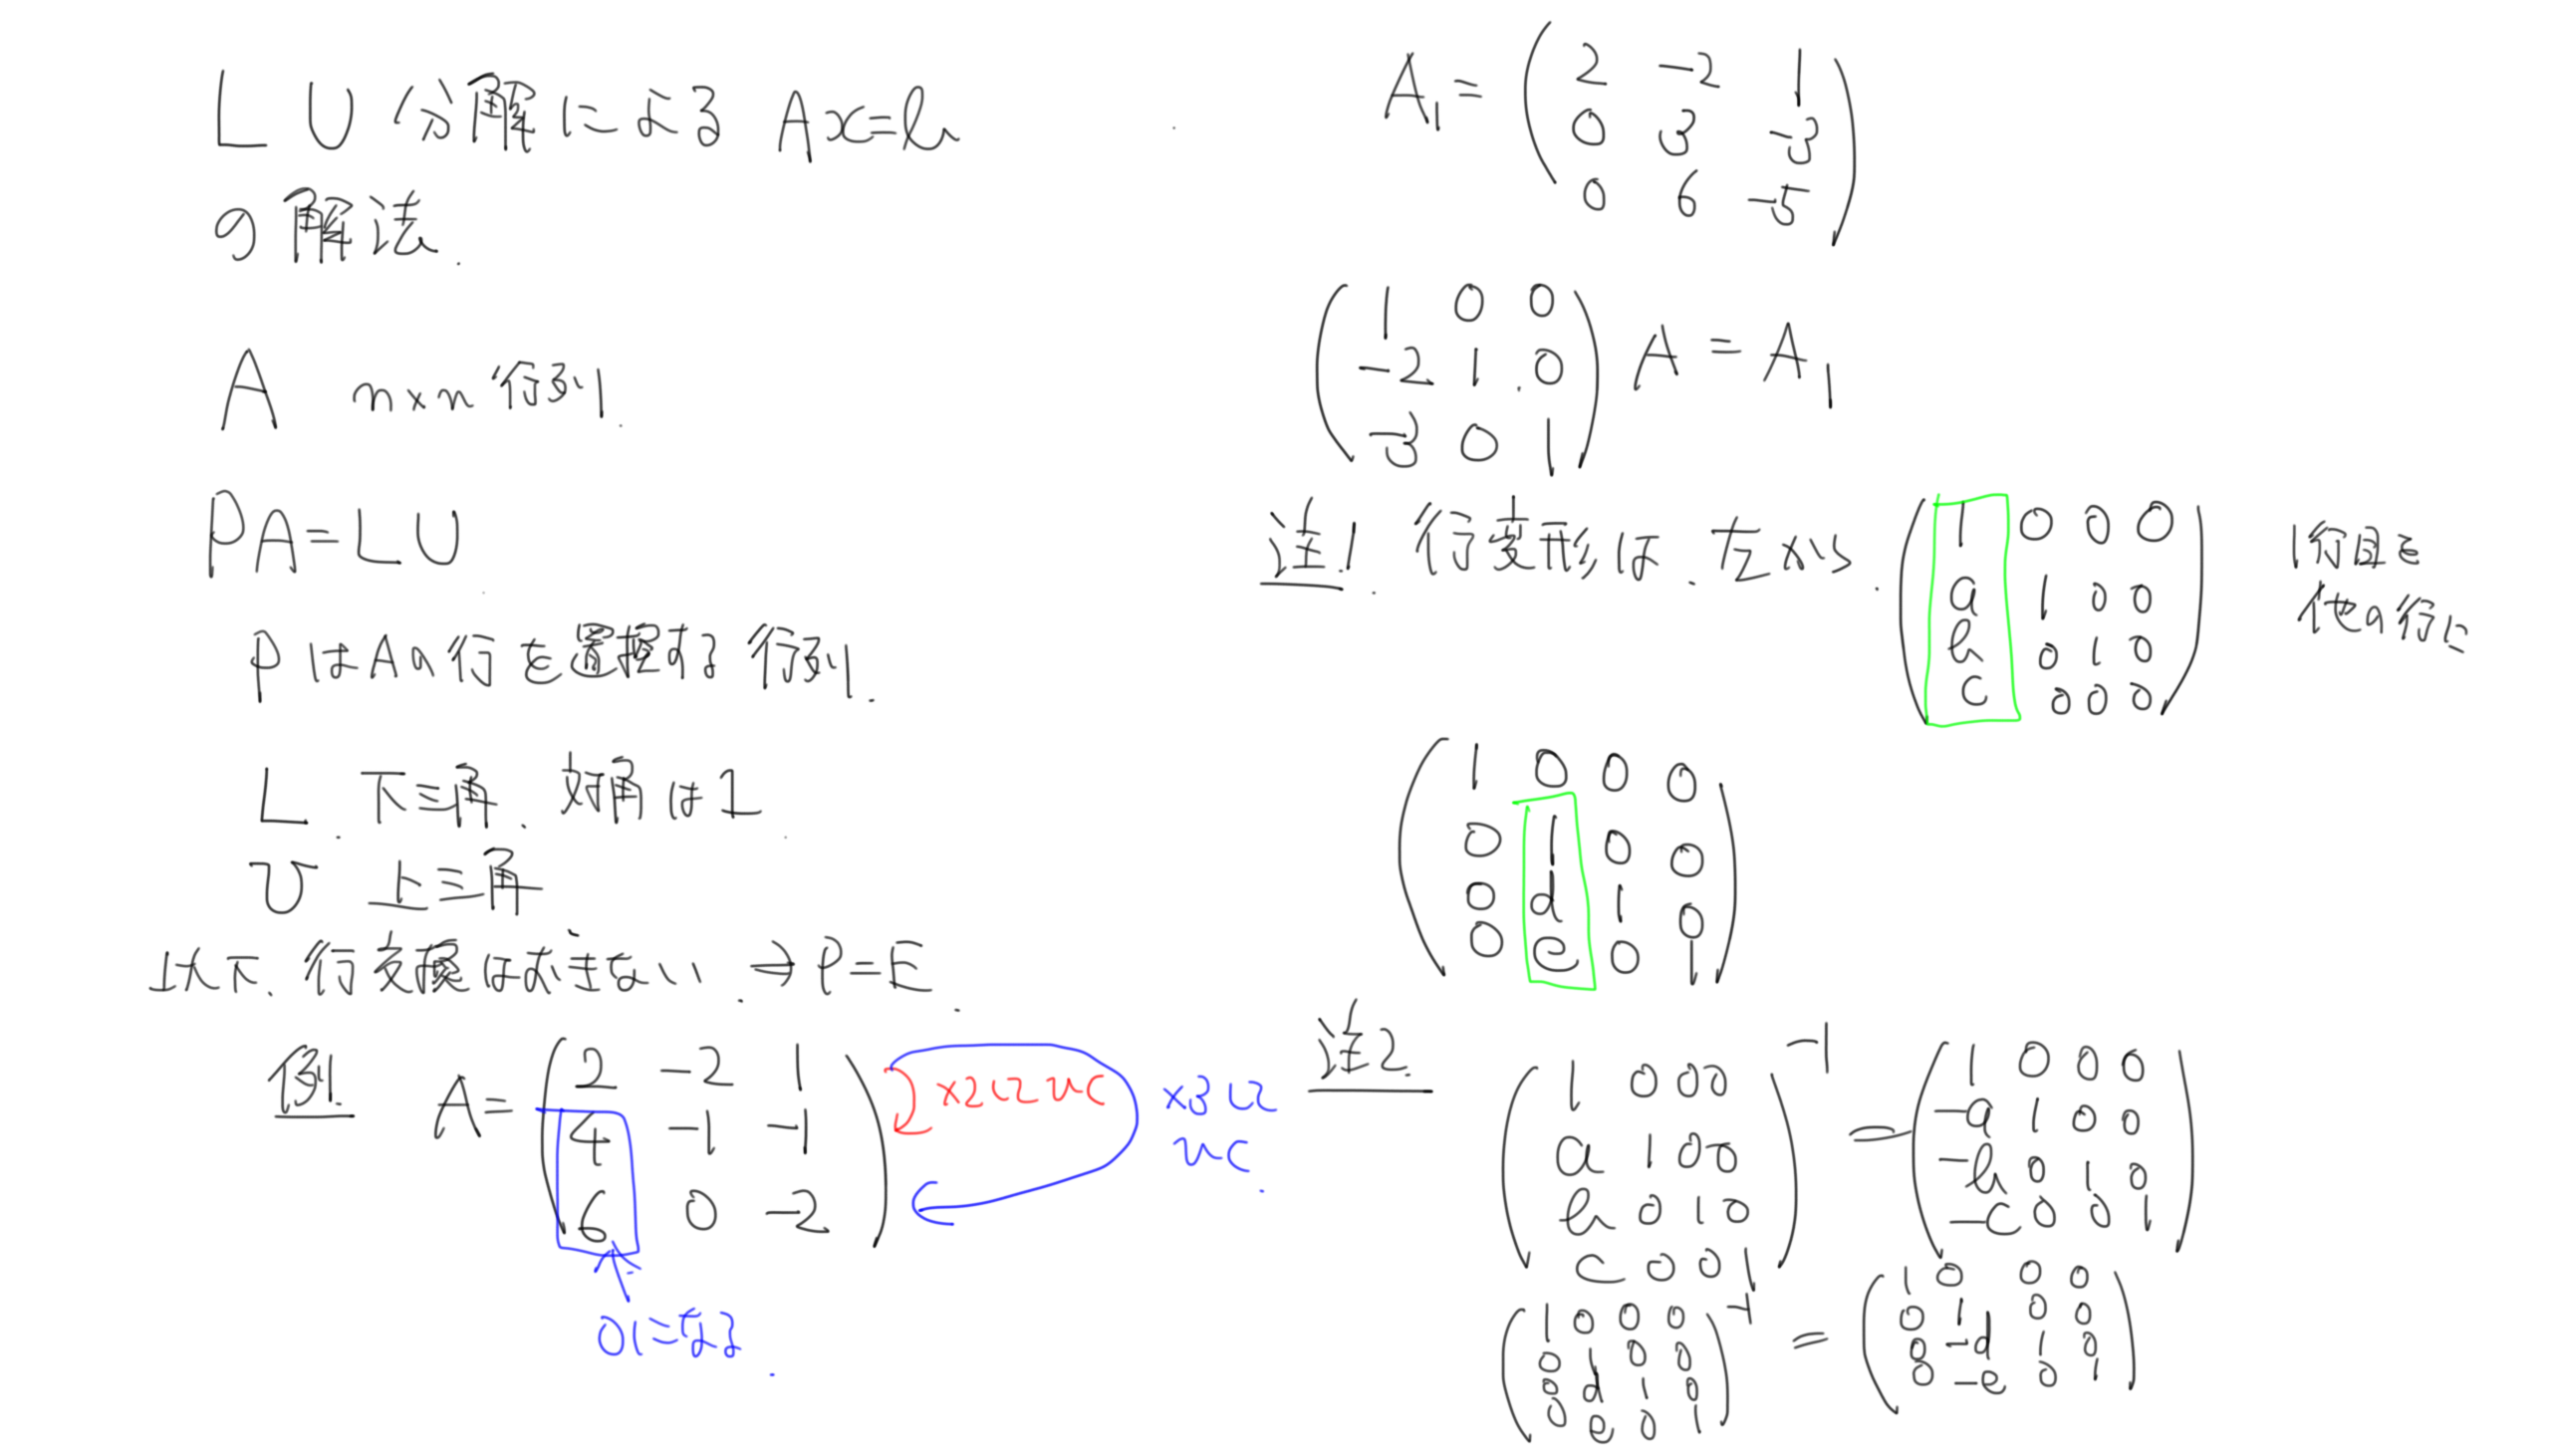 LU分解による Ax=b
の解法.
A n×n行列.
PA=LU
PはAの行を置換する行列.
L. 下三角、対角は1
U 上三角
以下、行交換はおきない. → P=E.
例. A=
2 -2 1
4 -1 -1
6 0 -2
×2して
×3して
0になる.
A₁=
2 -2 1
0 3 -3
0 6 -5
1 0 0
-2 1 0
-3 0 1
A = A₁
注1. 行変形は、左から.
1 0 0 0
a 1 0 0
b 0 1 0
c 0 0 0
1行目を
他の行に
1 0 0 0
0 1 0 0
0 d 1 0
0 e 0 1
注2.
1 0 0 0
a 1 0 0
b 0 1 0
c 0 0 1
-1
=
1 0 0 0
-a 1 0 0
-b 0 1 0
-c 0 0 1
1 0 0 0
0 1 0 0
0 d 1 0
0 e 0 1
-1
=
1 0 0 0
0 1 0 0
0 -d 1 0
0 -e 0 1